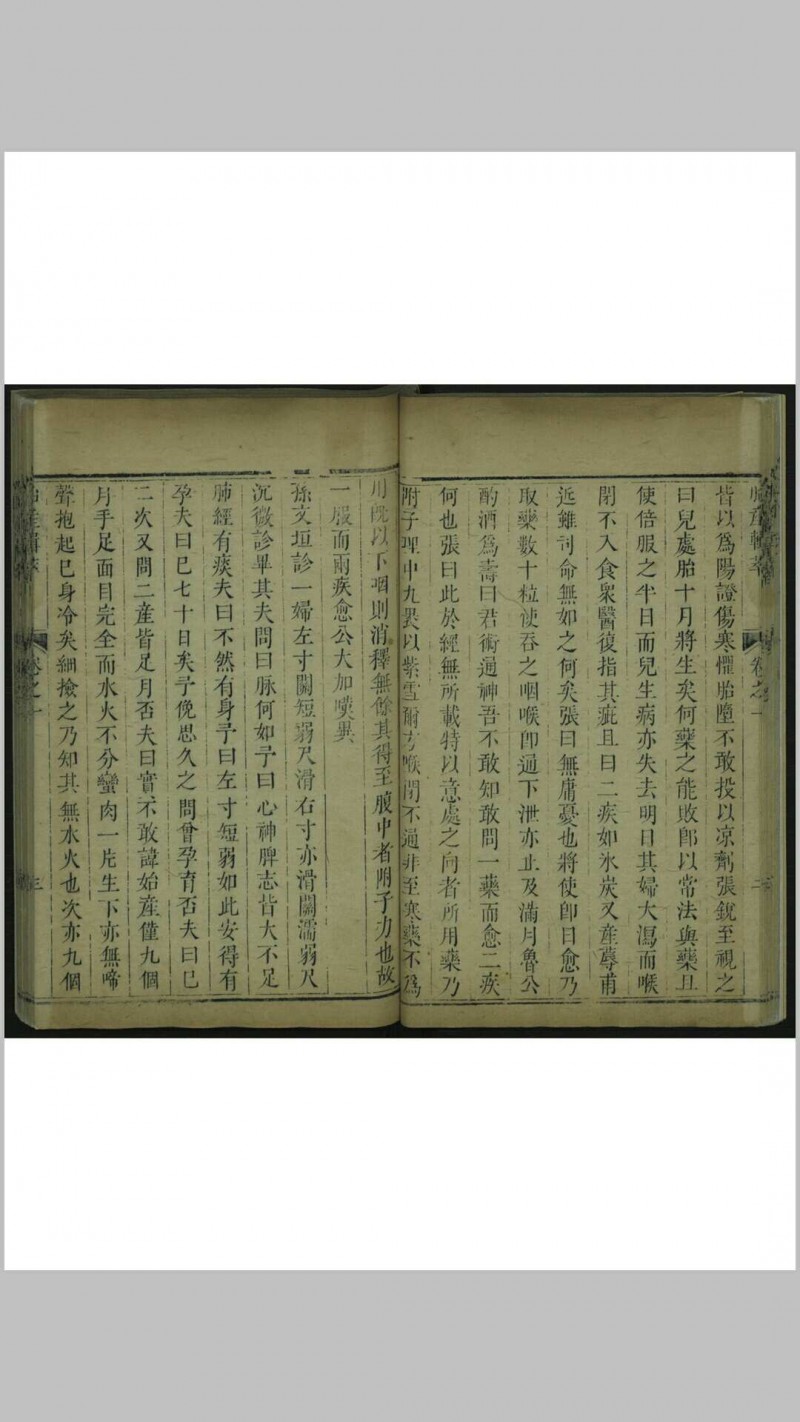 皆以爲陽證傷寒懼胎墮不敢投以凉劑張銳至視之
曰兒處胎十月將生矣何藥之能敗卽以常法與藥且
使倍服之半日而兒生病亦失去明日其婦大瀉而喉
閉不入食衆醫復指其疵且曰二疾如氷炭又產蓐甫
近雖司命無如之何矣張曰無庸憂也將使卽日愈乃
取藥數十粒使吞之咽喉卽通下泄亦止及滿月魯公
酌酒爲壽曰君術通神吾不敢知敢問一藥而愈二疾
何也張曰此於經無所載特以意處之向者所用藥乃
附子理中丸裹以紫雪爾方喉閉不通非至寒藥不爲
用旣以下咽則消釋無餘其得至腹中者附子力也故
一服而兩疾愈公大加嘆異
孫文垣診一婦左寸關短弱尺滑右寸亦滑關濡弱尺
沉微診畢其夫問曰脉何如予曰心神脾志皆大不足
肺經有痰夫曰不然有身予曰左寸短弱如此安得有
孕夫曰巳七十日矣予俛思久之問曾孕育否夫曰巳
二次又問二產皆足月否夫曰實不敢諱始產僅九個
月手足面目完全而水火不分臠肉一片生下亦無啼
聲抱起巳身冷矣細撿之乃知其無水火也次亦九個
卷之一